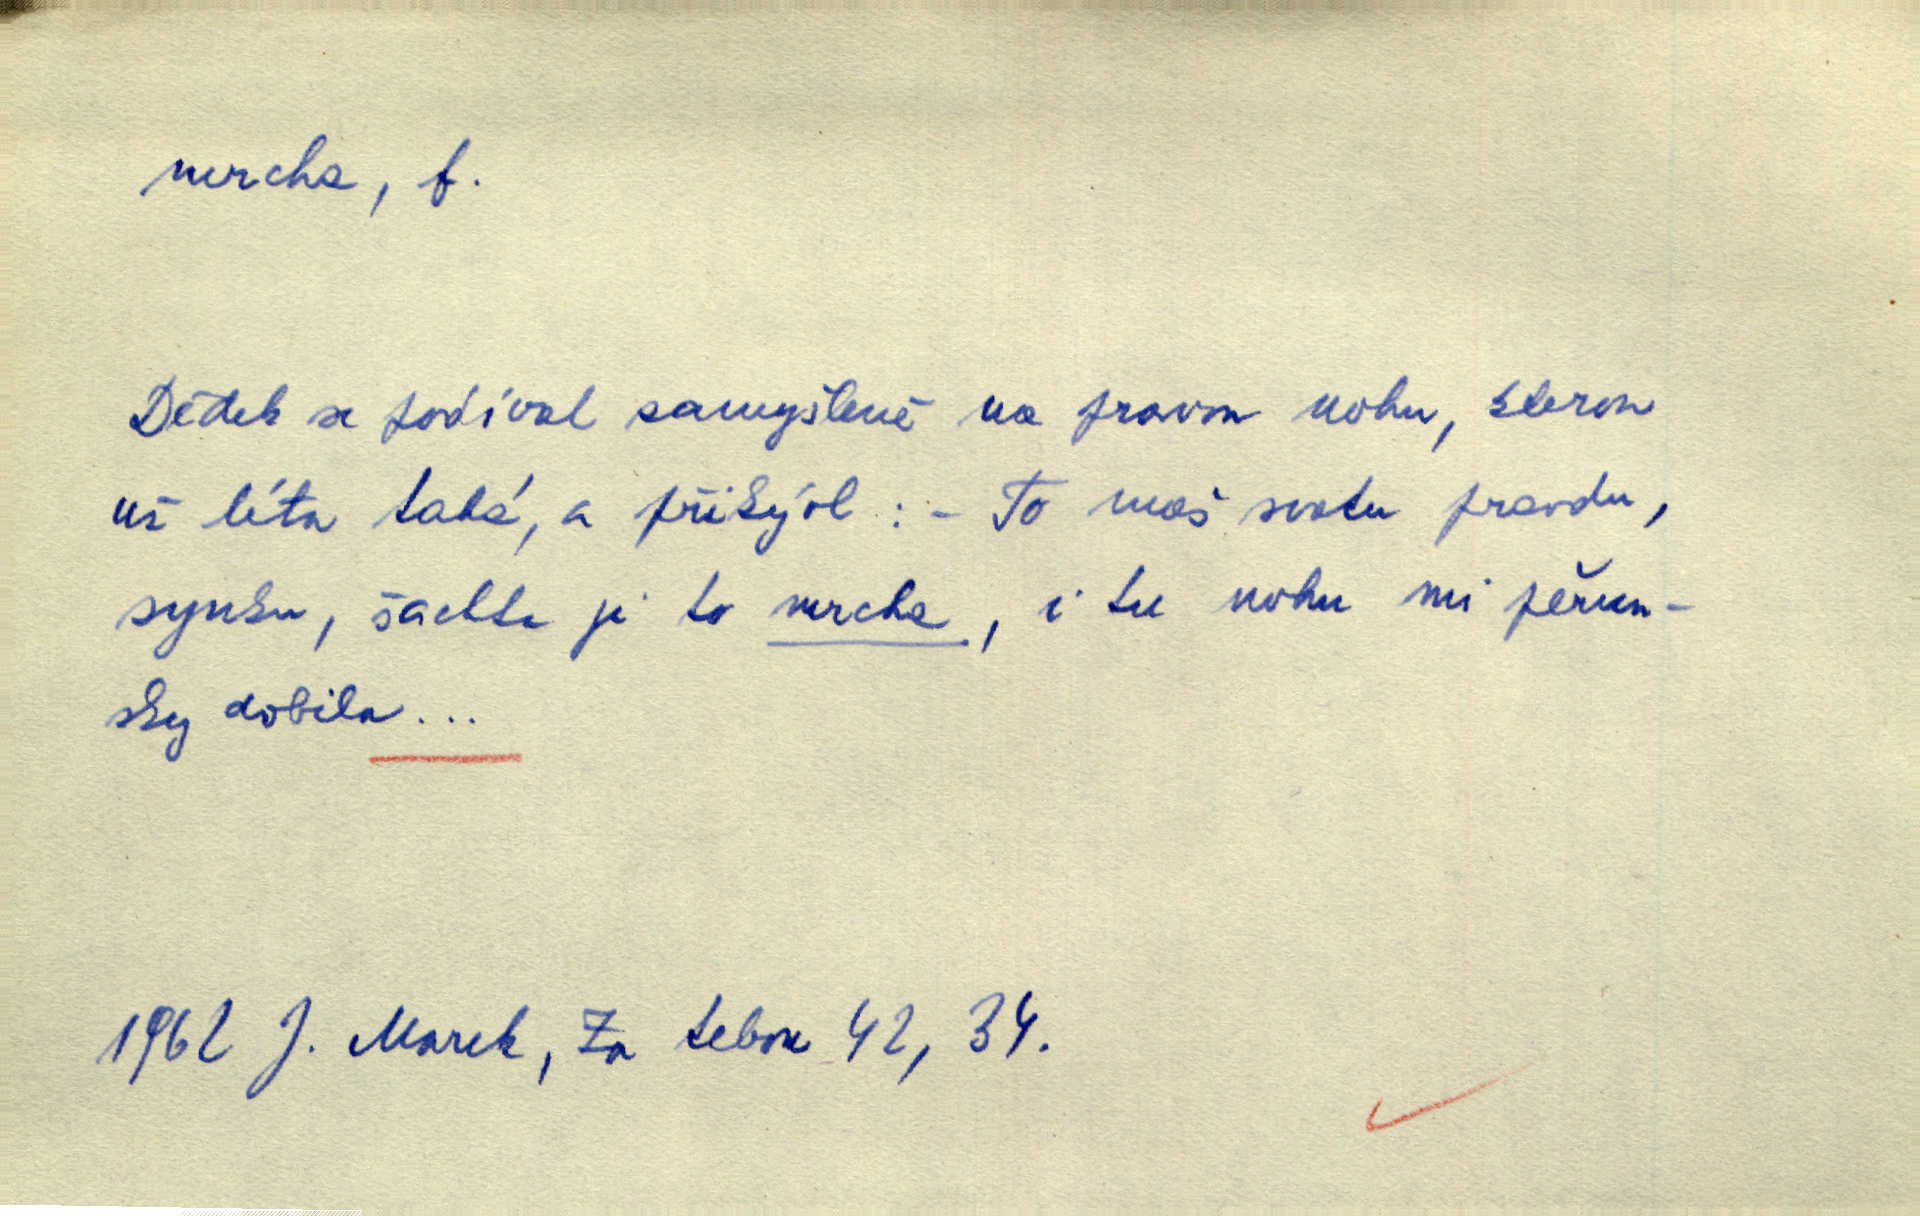 mrcha, f.
Dědek se podíval zamyšleně na pravou nohu, kterou
už léta tahá, a přikývl : - To maš svatu pravdu,
synku, šachta je to mrcha, i tu nohu mi pěrun-
sky dobila...
1962 J. Marek, Za tebou 42, 34.